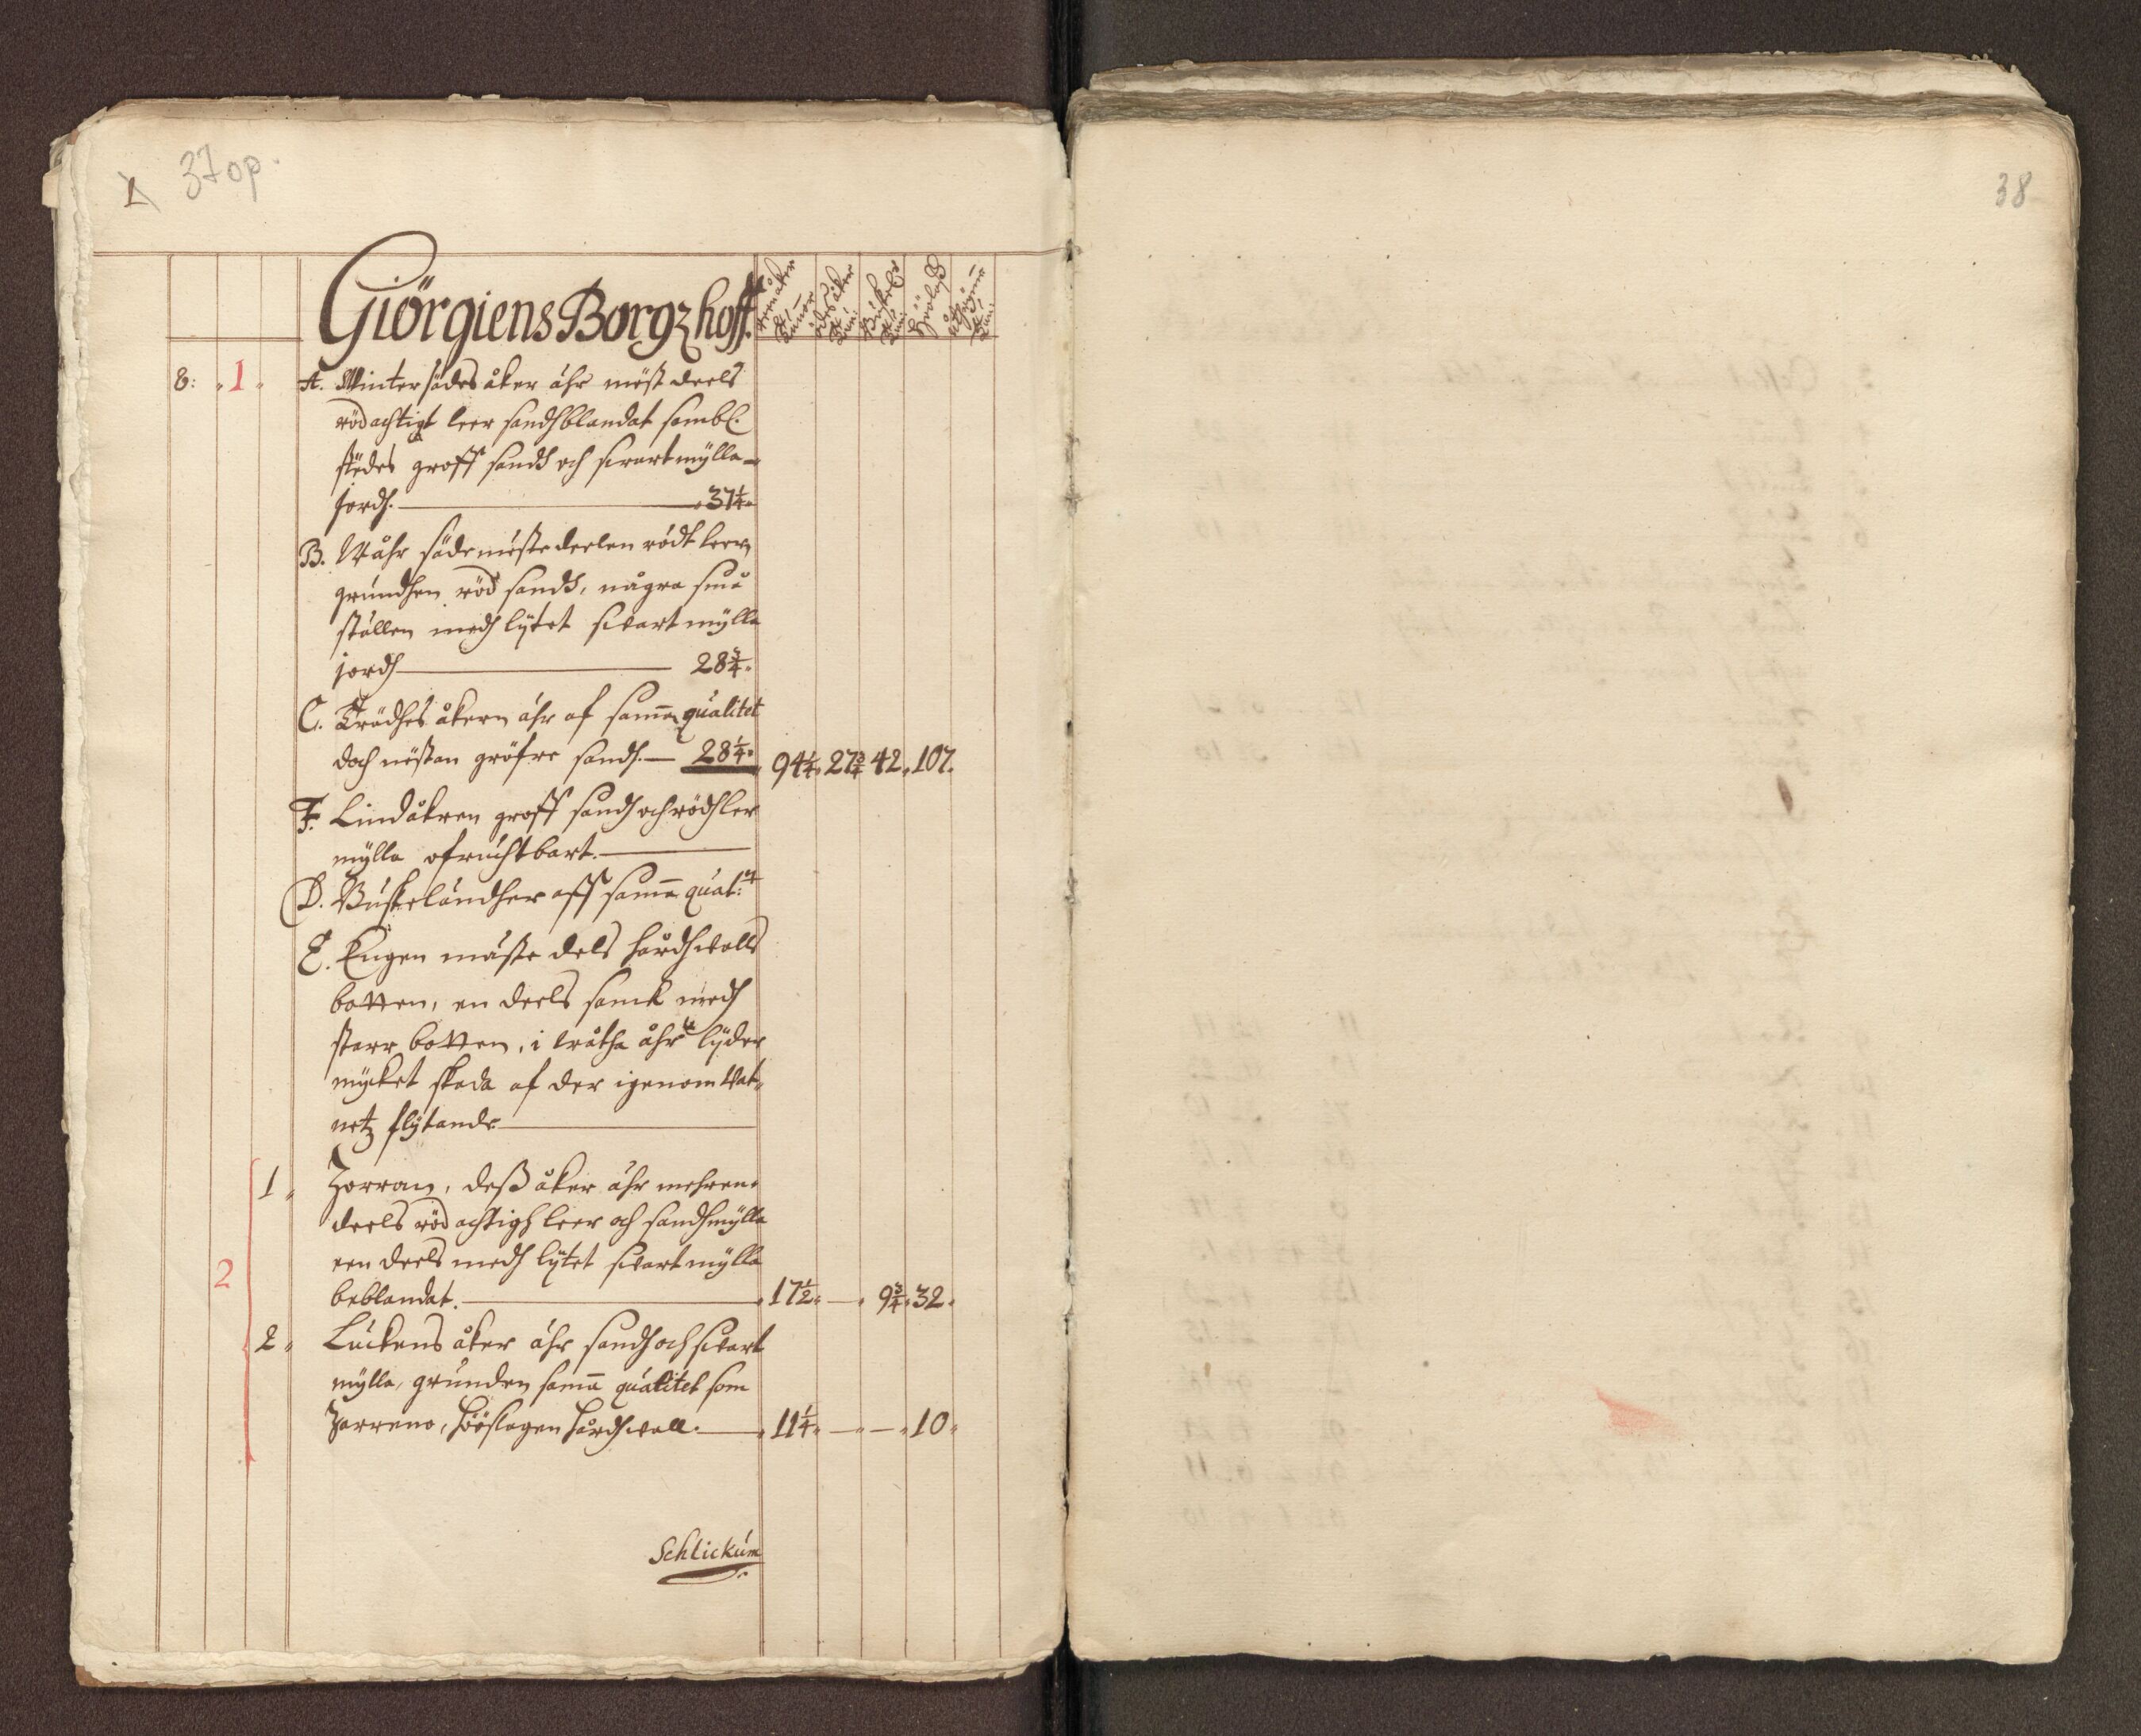 1
37 op.
38
Giörgiens Borgzhoff.
8: 1 A. Wintersädes åker ähr mäst deels
rödachtigt leer sandhblandat sambl.
städes groff sandh och swart mylla-
jordh. 37 1/4
B. Wåhr säde mäste deelen rödt leer,
grundhen röd sandh, några små
ställen medh lytet swart mylla
jordh 28 3/4
C. Trädhes åkern ähr af samma qualitet
doch nästan gröfre sandh. 28 1/4 94 1/4 27 3/4 42 107
F. Lindåkren groff sandh och rödh ler
mylla ofruchtbart.
D. Buskeländher aff samma qual:et
E. Engen mäste dels hårdhwalls
botten, en deels sanck medh
starr botten, i wåtha åhr lyder
mycket skada af der igenom wat-
netz flytande
1 Zorran, dess åker ähr mehren-
deels rödachtigh leer och sandhmylla
een deels medh lytet swart mylla
2
beblandat. 17 1/2 — 9 3/4 32
2 Luckens åker ähr sandh och swart
mylla, grunden samma qualitet som
Zarreno, höösslagen hårdhwall. 11 1/4 — — 10
Schlickum